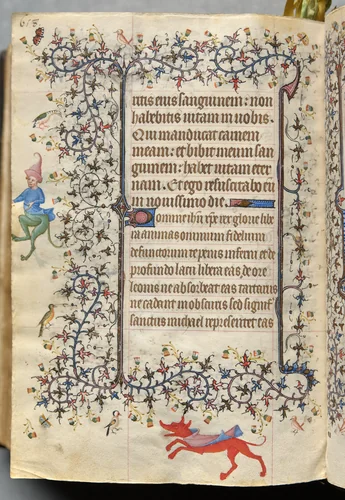 ritis eius sanguinem: non
habebitis vitam in vobis.
Qui manducat carnem
meam: et bibit meum san
guinem: habet vitam eter
nam. Et ego resuscitabo eu
in novissimo die.
Domine ihu xpe rex glorie libe
ra animas omnium fidelium
defunctorum de penis inferni et de
profundo lacu libera eas de ore
leonis ne absorbeat eas tartarus
ne cadant in obscuris sed signifer
sanctus michael representet eas